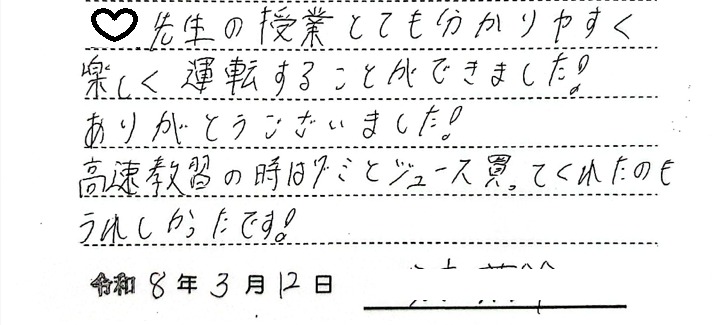 ♡先生の授業とても分かりやすく
楽しく運転することができました!
ありがとうございました!
高速教習の時はグミとジュース買ってくれたのも
うれしかったです!
令和8年3月12日